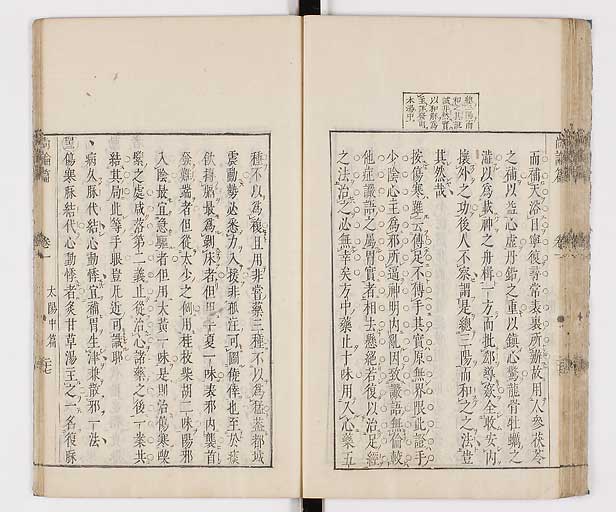 總三陽而
和之其説
誠非然實
以和解為
木湯中
而補天浴日寧復尋常表裏所辦故用人參茯苓
之補以益心虛丹鉛之重以鎮心驚龍骨牡蠣之
濇以為載神之舟楫一方而批郤導窾全收安内
攘外之功後人不察謂是總三陽而和之之法豈
其然哉
按傷寒雖云傳足不傳手其實原無界限此證手
少陰心主為邪所逼神明内亂因致讝語無倫較
他症讝語之屬胃實者相去懸絕若復以治足經
之法治之必無幸矣方中藥止十味用入心藥五
種不以為複且用非嘗藥三種不以為猛蓋都城
震動勢必悉力入援非孤注可圖僥倖也至於痰
飲搏膈最為剝床者但用半夏一味表邪内襲首
發難端者但從太少之例用桂枝柴胡二味陽邪
入陰最宜急驅者但用大黃一味是則治傷寒喫
緊之處咸落第二義止從治心諸藥之後一案共
結其局此等手眼豈凡近可識耶
病久脉代結心動悸宜補胃生津兼散邪一法
傷寒脉結代心動悸者炙甘草湯主之一名復脉
尚論篇
卷一
太陽中篇